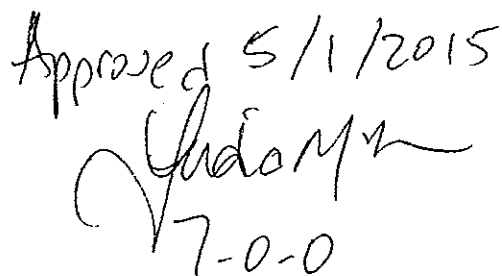 Approved 5/1/2015
7-0-0